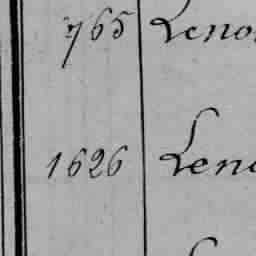 765 Leno
1626 Leno